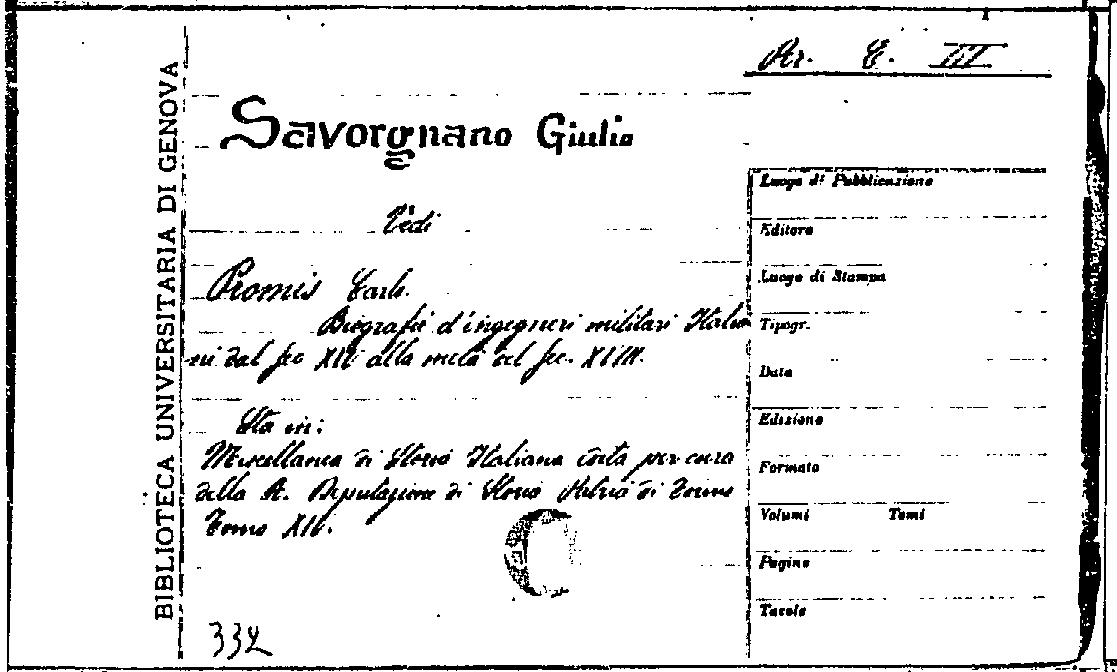 Ar. E. III
BIBLIOTECA UNIVERSITARIA DI GENOVA
Savorgnano Giulio
Vedi
Promis Carlo.
Biografie d'ingegneri militari Italia
ni dal sec XIV alla metà del sec. XVIII.
Sta in:
Miscellanea di Storia Italiana edita per cura
della R. Deputazione di Storia Patria di Torino
Tomo XIV.
332
Luogo di Pubblicazione
Editore
Luogo di Stampa
Tipogr.
Data
Edizione
Formato
Volumi Tomi
Pagine
Tavole